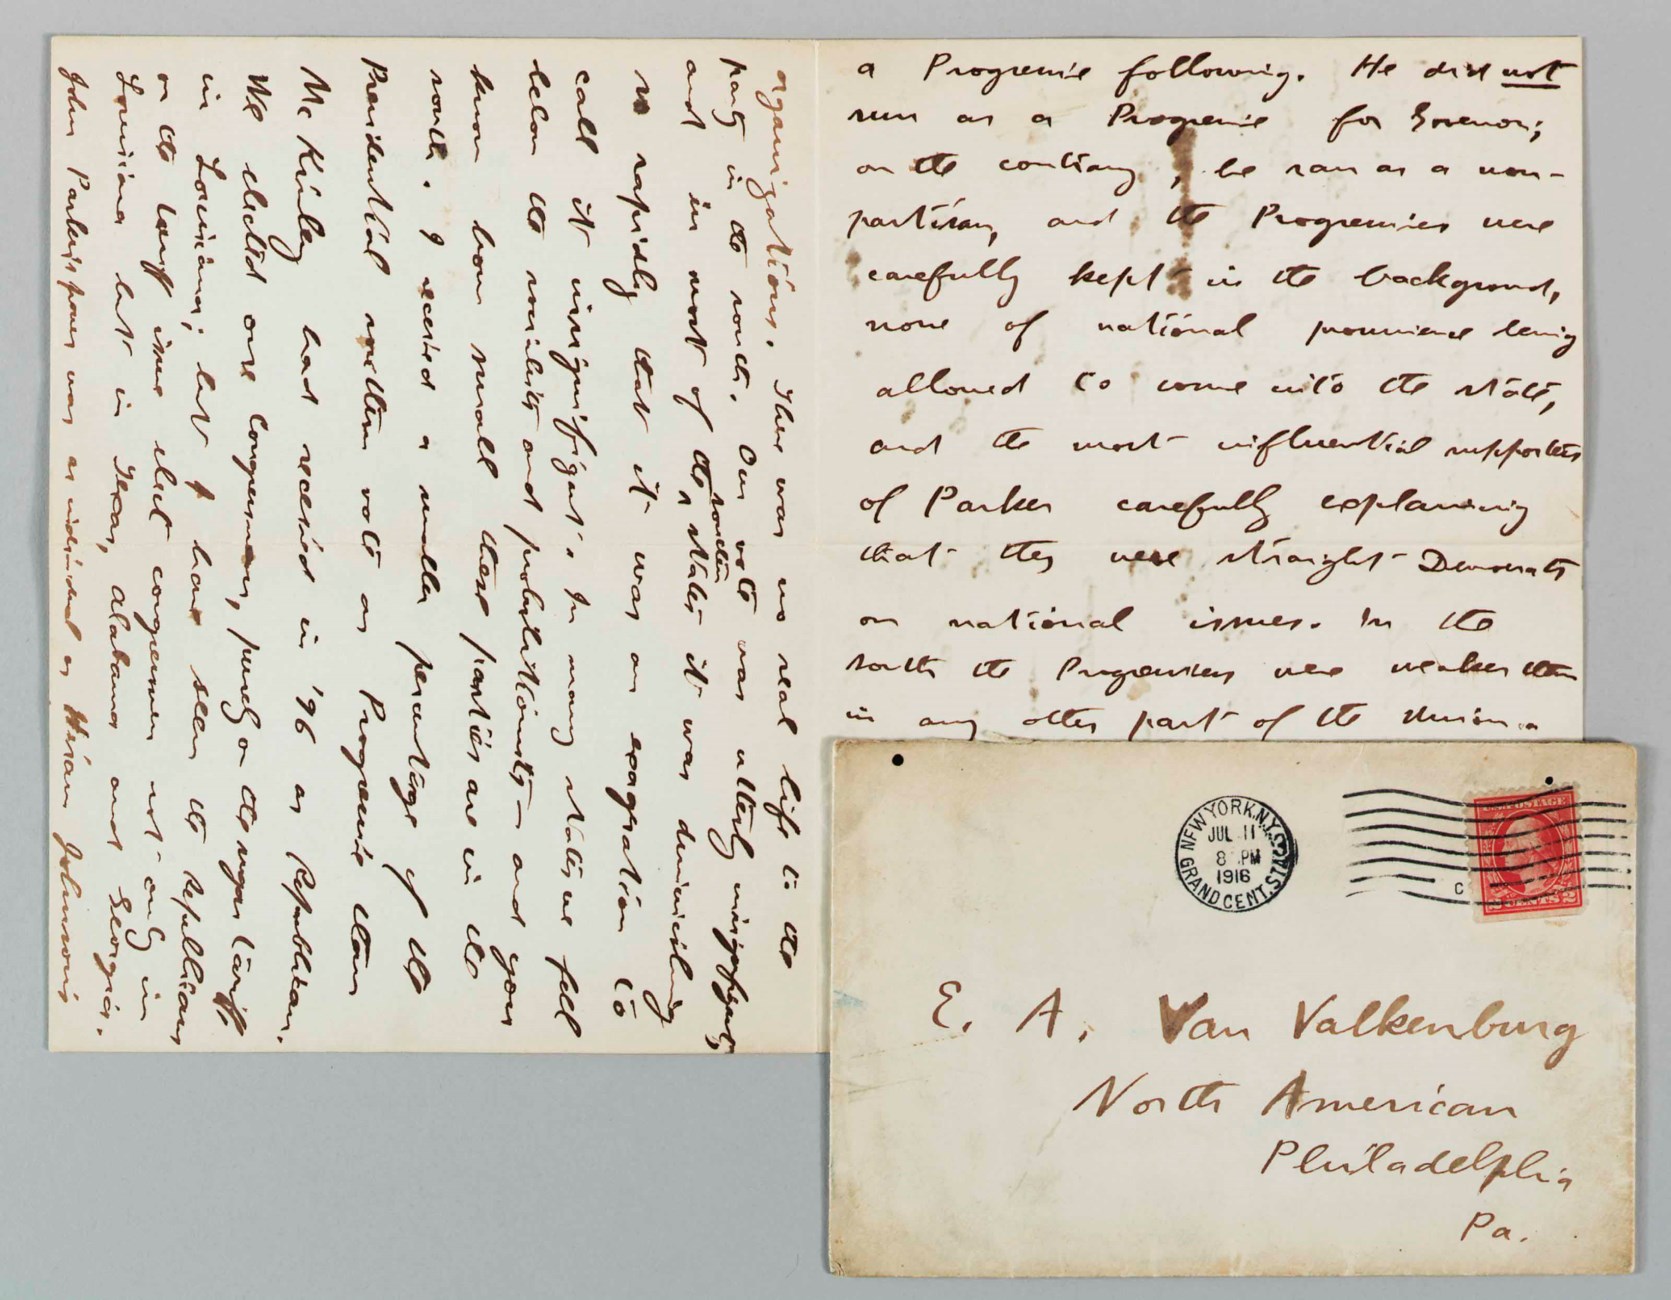 a Progressive following. He did not
run as a Progressive for Governor;
on the contrary, he ran as a non-
partisan, and the Progressives were
carefully kept in the background,
none of national prominence being
allowed to come into the state,
and the most influential supporters
of Parker carefully explaining
that they were straight Democrats
on national issues. In the
south the Progressives were weaker than
in any other part of the Union.
organizations. There was no real life to the
party in the south. Our vote was utterly insignificant,
and in most of the southern states it was diminishing
so rapidly that it was an exageration to
call it insignificant. In many states we fell
below the socialists and prohibitionists — and you
know how small these parties are in the
south. I received a smaller percentage of the
Presidential southern vote as Progressive than
McKinley had received in '96 as Republican.
We elected one congressman, purely on the sugar tariff,
in Louisiana; but I have seen the republicans
on the tariff issue elect congressmen not only in
Louisiana but in Texas, Alabama and Georgia.
John Parker's power was as individual as Hiram Johnson's
NEW YORK, N.Y.
GRAND CENT. STA.
JUL 11
8 PM
1916
C
U.S. POSTAGE
2 CENTS 2
E. A. Van Valkenburg
North American
Philadelphia
Pa.